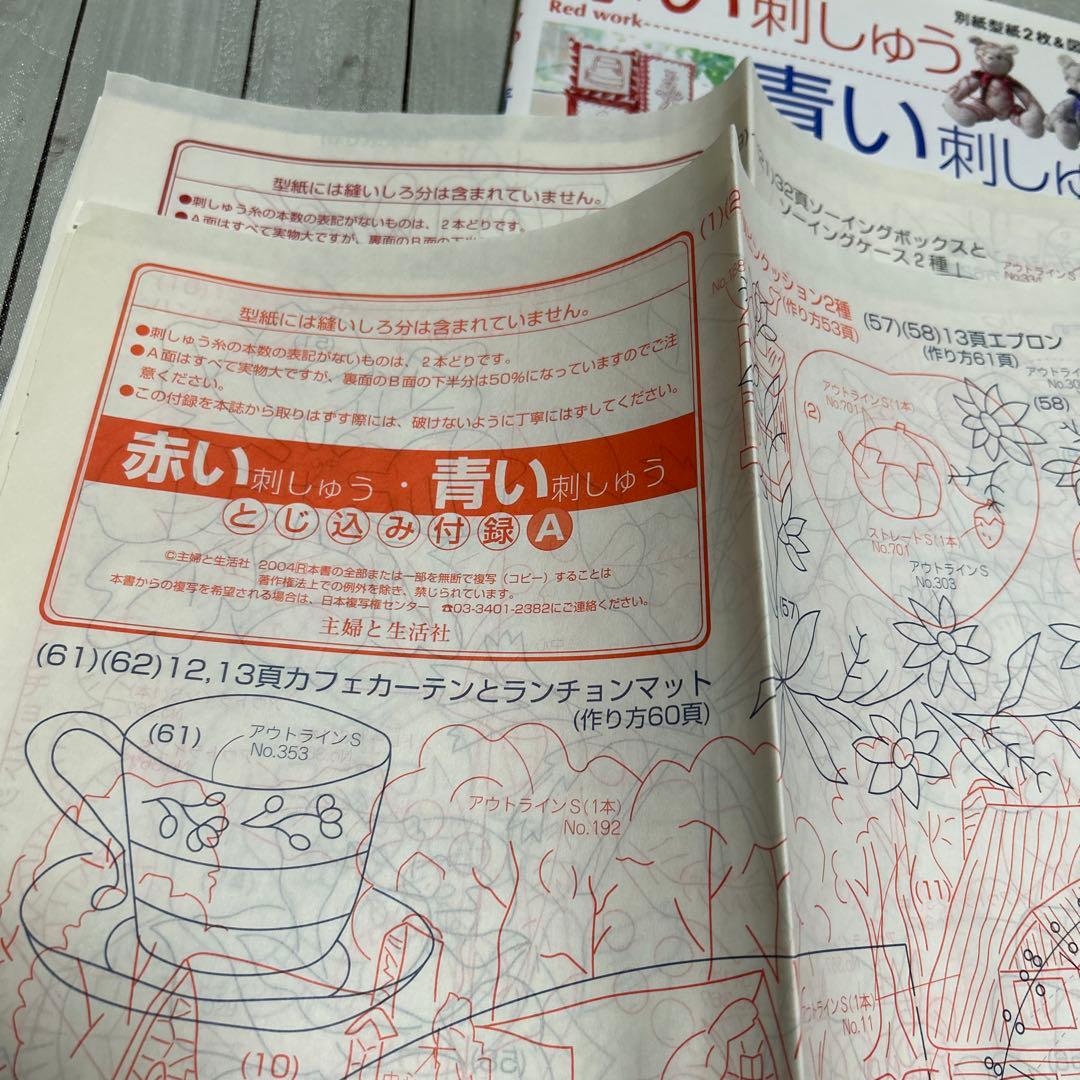 刺しゅう
Red work
別紙型紙2枚&図
青い刺しゅ
型紙には縫いしろ分は含まれていません。
●刺しゅう糸の本数の表記がないものは、2本どりです。
●A面はすべて実物大ですが、裏面のB面の下半
32頁ソーイングボックスと
ソーイングケース2種
アウトラインS
型紙には縫いしろ分は含まれていません。
●刺しゅう糸の本数の表記がないものは、2本どりです。
●A面はすべて実物大ですが、裏面のB面の下半分は50%になっていますのでご注
意ください。
●この付録を本誌から取りはずす際には、破けないように丁寧にはずしてください。
赤い刺しゅう・青い刺しゅう
とじ込み付録A
©主婦と生活社 2004Ⓡ本書の全部または一部を無断で複写(コピー)することは
著作権法上での例外を除き、禁じられています。
本書からの複写を希望される場合は、日本複写権センター ☎03-3401-2382にご連絡ください。
主婦と生活社
(61)(62)12,13頁カフェカーテンとランチョンマット
(作り方60頁)
(61)
アウトラインS
No.353
アウトラインS(1本)
No.192
(10)
(1)(2)
クッション2種
(作り方53頁)
(57)(58)13頁エプロン
(作り方61頁)
アウトラインS(1本)
No.701
(2)
(58)
ストレートS(1本)
No.701
アウトラインS
No.303
(57)
(11)
アウトラインS(1本)
No.11